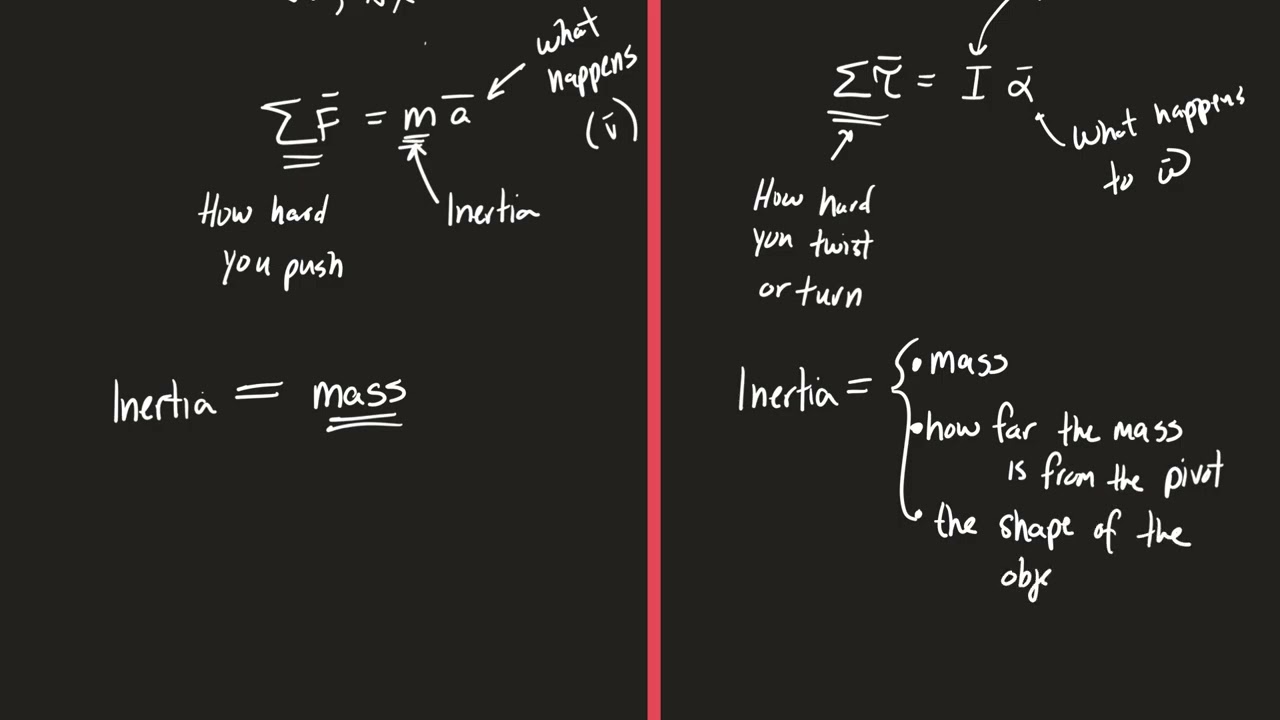 ΣF̄ = m ā
what
happens
(v̄)
How hard
you push
Inertia
Inertia = mass
Στ̄ = I ᾱ
what happens
to ω̄
How hard
you twist
or turn
Inertia = { • mass
• how far the mass
is from the pivot
• the shape of the
obje